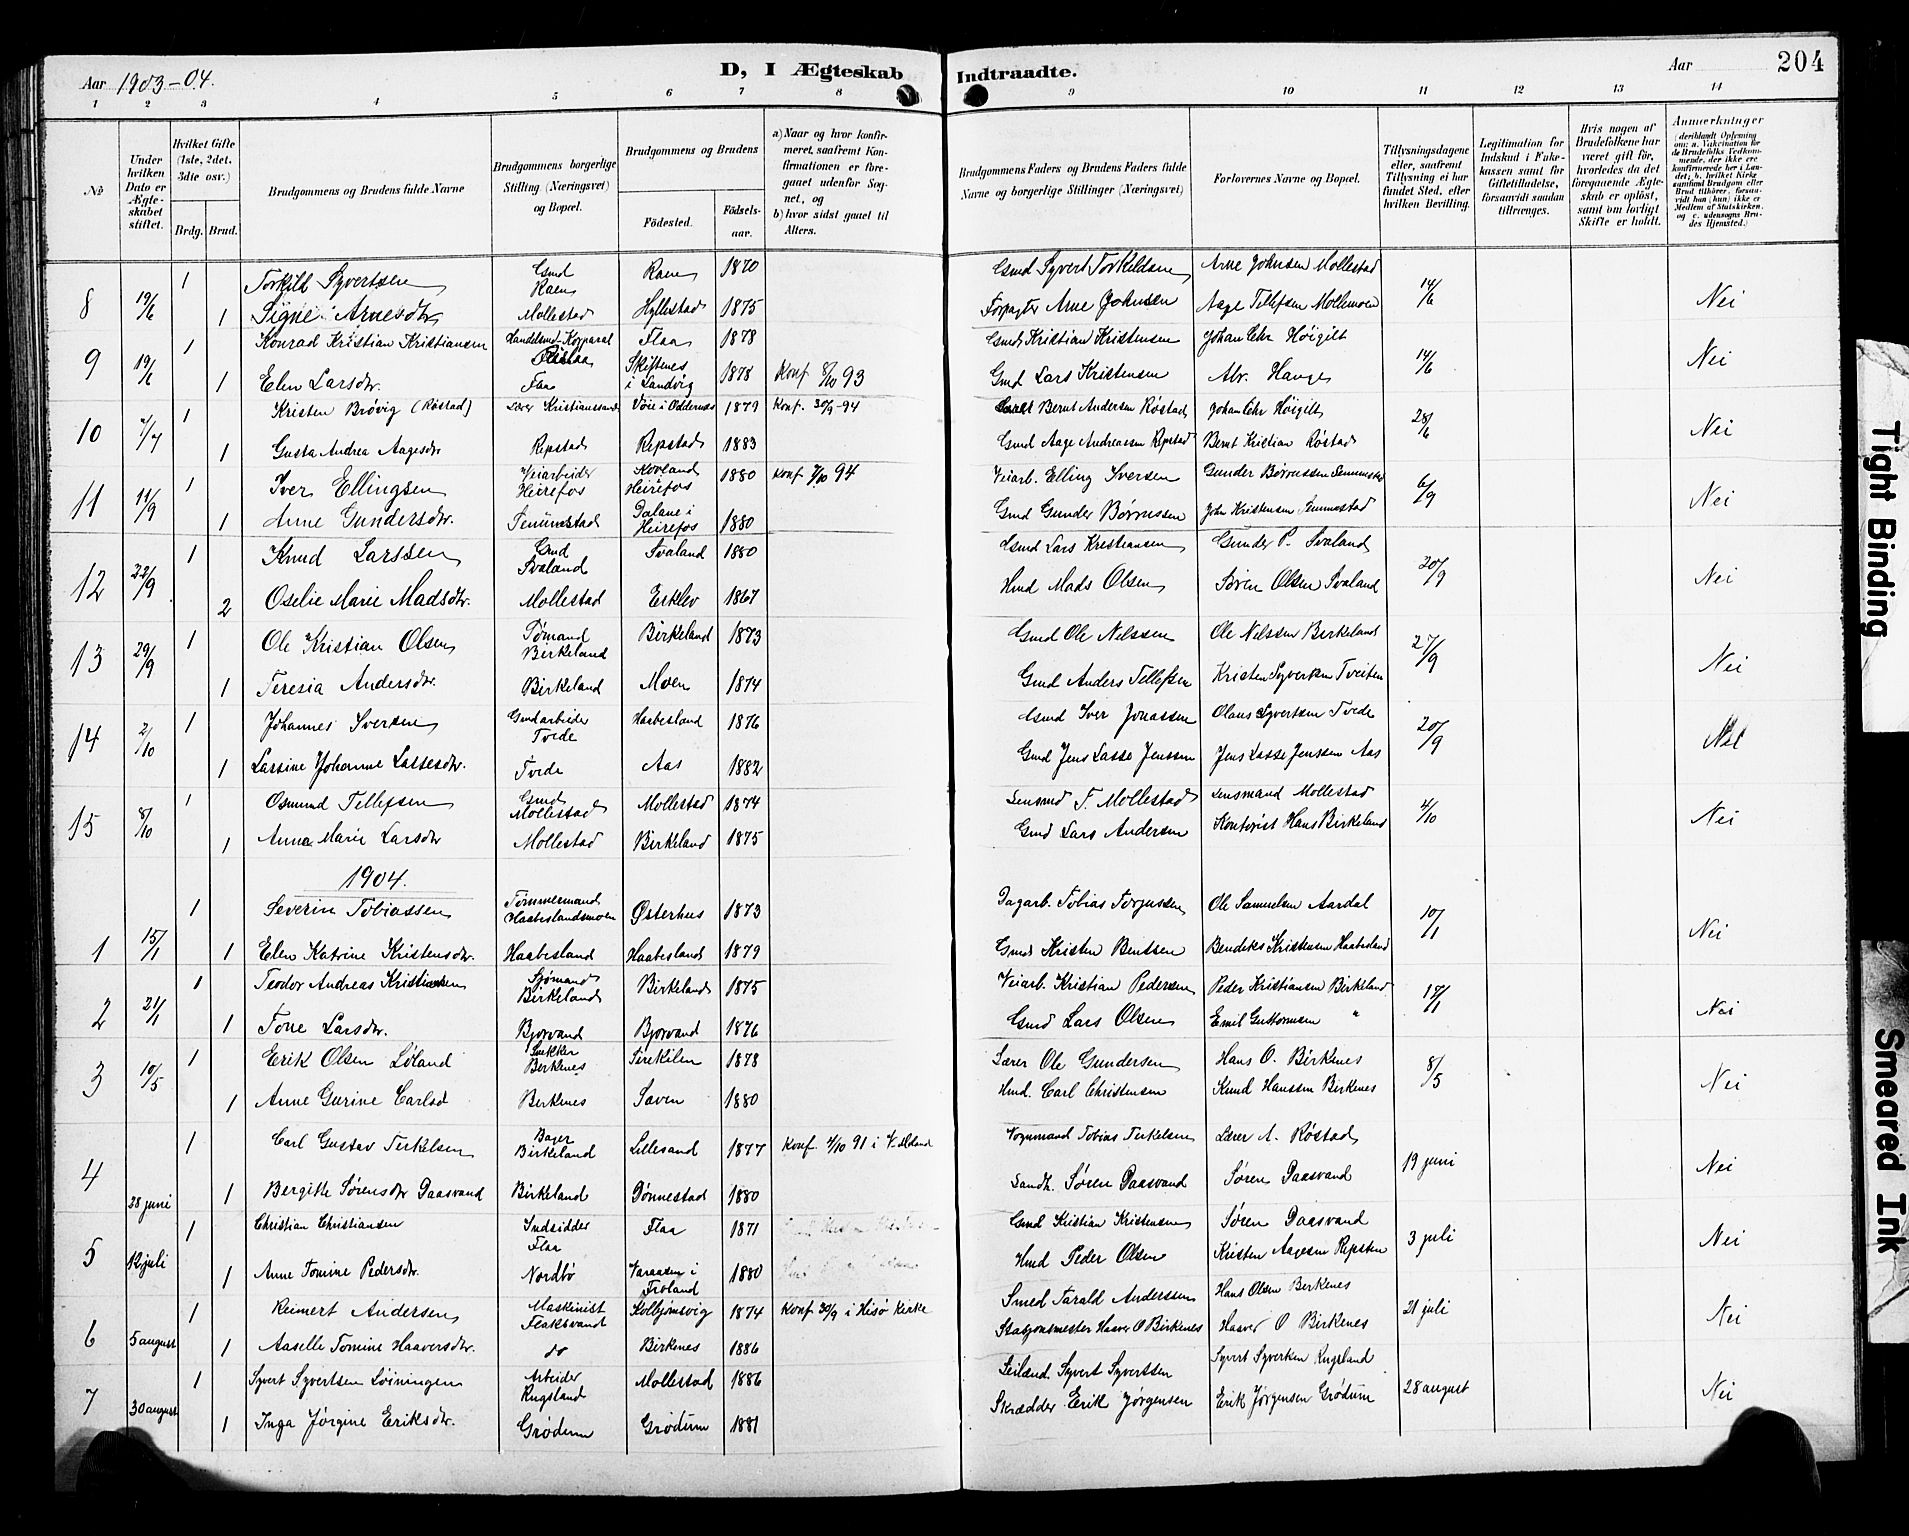 Aar 1903-04.
D, I Ægteskab Indtraadte.
Aar
204
1 2 3 4 5 6 7 8 9 10 11 12 13 14
No
Under hvilken Dato er Ægteskabet stiftet.
Hvilket Gifte (1ste, 2det, 3die osv.)
Brdg. Brud.
Brudgommens og Brudens fulde Navne
Brudgommens borgerlige Stilling (Næringsvei) og Bopæl.
Brudgommens og Brudens
Fødested.
Fødselsaar.
a) Naar og hvor konfirmeret, saafremt Konfirmationen er foregaaet udenfor Sognet, og
b) hvor sidst gaaet til Alters.
Brudgommens Faders og Brudens Faders fulde Navne og borgerlige Stillinger (Næringsvei)
Forlovernes Navne og Bopæl.
Tillysningsdagene eller, saafremt Tillysning ei har fundet Sted, efter hvilken Bevilling.
Legitimation for Indskud i Enkekassen samt for Giftetilladelse, forsaavidt saadan tiltrænges.
Hvis nogen af Brudefolkene har været gift før, hvorledes da det foregaaende Ægteskab er opløst, samt om lovligt Skifte er holdt.
Anmerkninger
(deriblandt Oplysning om: a. Vakcination for de Brudefolks Vedkommende, der ikke ere konfirmerede her i Landet; b. hvilket Kirkesamfund Brudgom eller Brud tilhører, forsaavidt han (hun) ikke er Medlem af Statskirken, og c. udensogns Brudes Hjemsted.)
8 19/6 1 Torkild Syvertsen Gmd Raen Raen 1870 Gmd Syvert Torkildsen Arne Johnsen Mollestad 14/6 Nei
1 Signe Arnesdtr Mollestad Hyllestad 1875 Forpagter Arne Johnsen Aage Tellefsen Mollemoen
9 19/6 1 Konrad Kristian Kristiansen Handelsmd Korporal Flaa 1878 Gmd Kristian Kristensen Johan Chr Höigilt 14/6 Nei
1 Elen Larsdtr. Flaa Skiftenes i Landvig 1878 Konf 8/10 93 Gmd Lars Kristensen Alv. Hauge
10 7/7 1 Kristen Brøvig (Røstad) Lærer Kristianssand Voie i Oddernes 1879 Konf. 30/9-94 Bernt Andersen Røstad Johan Chr Höigilt 28/6 Nei
1 Gusta Andrea Aagesdtr Repstad Repstad 1883 Gmd Aage Andreassen Repstad Bernt Kristian Røstad
11 11/9 1 Iver Ellingsen Veiarbeider Heirefos Kovland Heirefos 1880 Konf 7/10 94 Veiarb. Elling Iversen Gunder Børrussen Senumstad 6/9 Nei
1 Anne Gundersdtr. Senumstad Dalane i Heirefos 1880 Gmd Gunder Børrussen John Kristensen Senumstad
12 22/9 1 Knud Larssen Gmd Svaland Svaland 1880 Gmd Lars Kristiansen Gunder P. Svaland 20/9 Nei
2 Oselie Marie Madsdtr. Mollestad Esklev 1867 Hmd Mads Olsen Søren Olsen Svaland
13 29/9 1 Ole Kristian Olsen Tømand Birkeland Birkeland 1873 Gmd Ole Nelssen Ole Nilssen Birkeland 27/9 Nei
1 Teresia Andersdtr. Birkeland Moen 1874 Gmd Anders Tellefsen Kristen Syvertsen Tveiten
14 2/10 1 Johannes Iversen Gmdarbeider Tvede Haabesland 1876 Gmd Iver Jonassen Olaus Syvertsen Tvede 20/9 Nei
1 Lassine Johanne Lassesdtr. Tvede Aas 1882 Gmd Jens Lasse Jenssen Jens Lasse Jenssen Aas
15 8/10 1 Osmund Tellefsen Gmd Mollestad Mollestad 1874 Lensmd T. Mollestad Lensmand Mollestad 4/10 Nei
1 Anna Marie Larsdtr Mollestad Birkeland 1875 Gmd Lars Andersen Kontorist Hans Birkeland
1904.
1 15/1 1 Severin Tobiassen Tømmermand Haabeslandsmoen Østerhus 1873 Dagarb. Tobias Torjussen Ole Samuelsen Aardal 10/1 Nei
1 Elen Katrine Kristensdtr. Haabesland Haabesland 1879 Gmd Kristen Bentsen Bendiks Kristensen Haabesland
2 21/1 1 Teodor Andreas Kristiansen Sjømand Birkeland Birkeland 1875 Veiarb. Kristian Pedersen Peder Kristiansen Birkeland 17/1 Nei
1 Tone Larsdtr. Bjorvand Bjorvand 1876 Gmd Lars Olsen Emil Guttormsen "
3 10/5 1 Erik Olsen Løland Snekker Birkenes Sirekilen 1878 Lærer Ole Gundersen Hans O. Birkenes 8/5 Nei
1 Anne Gurine Carlsd Birkenes Saven 1880 Hmd. Carl Christensen Knud Hanssen Birkenes
4 28 juni 1 Carl Gustav Terkelsen Bager Birkeland Lillesand 1877 Konf. 4/10 91 i V. Moland Vognmand Tobias Terkelsen Lærer A. Røstad 19 juni Nei
1 Bergitte Sørensdtr Daasvand Birkeland Dønnestad 1880 Landh. Søren Daasvand Søren Daasvand
5 12 juli 1 Christian Christiansen Indsidder Flaa Flaa 1871 Gmd Kristian Kristensen Søren Daasvand 3 juli Nei
1 Anne Tomine Pedersdtr. Nordbø Varaasen i Froland 1880 Hmd Peder Olsen Kristen Aagesen Repsten
6 5 august 1 Reimert Andersen Maskinist Flaksvand Kolbjørnsvig 1874 Konf 30/9 i Hisø Kirke Smed Tarald Anderssen Hans Olsen Birkenes 21 juli Nei
1 Aaselle Tomine Haaversdtr. do Birkenes 1886 Stasjonsmester Haaver O Birkenes Haaver O Birkenes
7 30 august 1 Syvert Syvertsen Løiningen Arbeider Rugsland Mollestad 1886 Syvert Syvertsen Syvert Syvertsen Rugsland 28 august Nei
1 Inga Jørgine Eriksdtr. Grødum Grødum 1881 Skrædder Erik Jørgensen Erik Jørgensen Grødum
Tight Binding
Smeared Ink